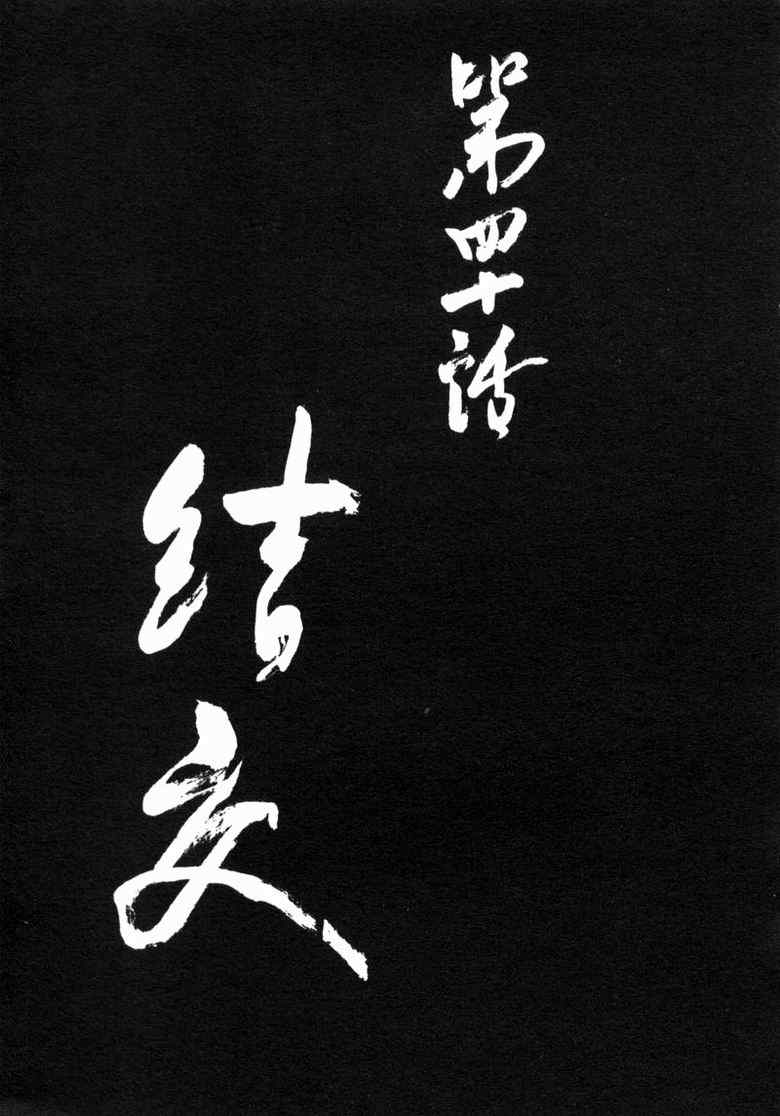 第四十話
結交